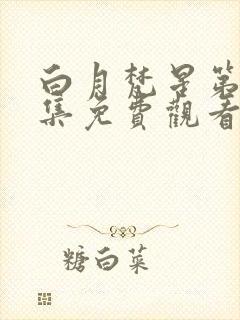 白月梵星第
集免費觀看
糖白菜